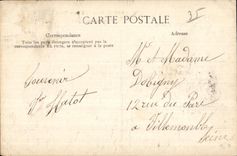 CARTE POSTALE
35
Correspondance
Tous les pays étrangers n'acceptent pas la
correspondance au recto, se renseigner à la poste
Adresse
Mr et Madame
Dobigny
12 rue du Parc
à Villemomble
Seine
Souvenir
Malot